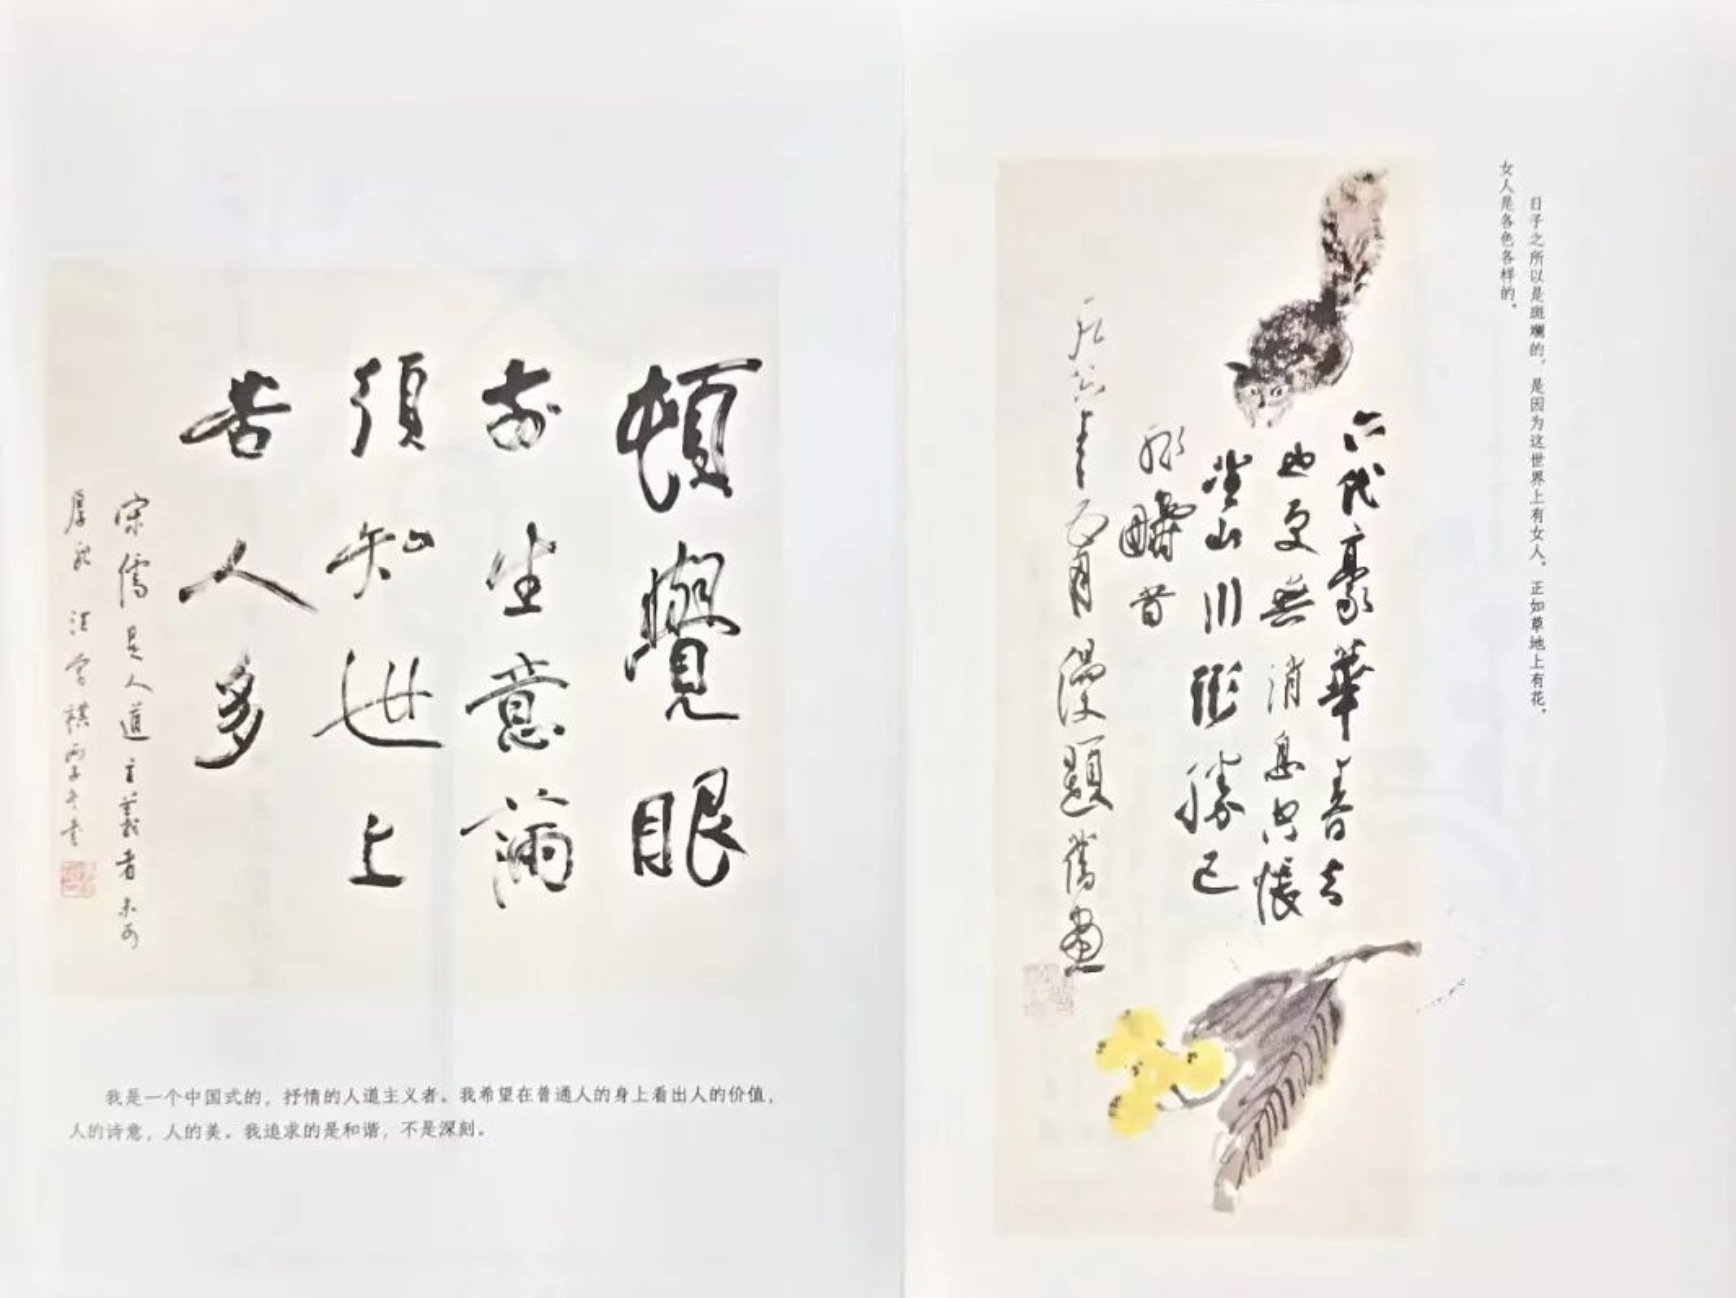 頓覺眼
前生意滿
須知世上
苦人多
宋儒是人道主義者未可
厚非 汪曾祺
我是一个中国式的，抒情的人道主义者。我希望在普通人的身上看出人的价值，
人的诗意，人的美。我追求的是和谐，不是深刻。
日子之所以是斑斓的，是因为这世界上有女人，正如草地上有花，
女人是各色各样的。
六代豪華春去
也更無消息空悵
望山川形勝已
非疇昔
年五月漫題舊畫